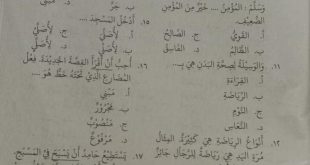 وَسَلَّمَ: الْمُؤْمِنُ .... خَيْرٌ مِنَ الْمُؤْمِنِ
الضَّعِيْفِ.
أ. القَوِيُّ ج. الصَّالِحُ
ب. الظَّالِمُ د. الفَاسِقُ
١١. وَالْوَسِيْلَةُ لِصِحَّةِ الْبَدَنِ هِيَ بِـ....
أ. القِرَاءَةِ
ب. الرِّيَاضَةِ
ج. النَّوْمِ
د. النُّعَاسِ
١٢. أَنْوَاعُ الرِّيَاضَةِ هِيَ كَثِيْرَةٌ. المِثَالُ
مُرَّةَ الْيَدِ هِيَ رِيَاضَةٌ لِلرِّجَالِ جَائِزٌ
ب. جَرٌّ
١٥. أَدْخُلُ الْمَسْجِدَ ....
أ. لِأُصَلِّيَ ج. لِأُصَلِّيْ
ب. لِأُصَلِّيَ د. لِأُصَلِّيْ
١٦. أُحِبُّ أَنْ أَقْرَأَ القِصَّةَ الْجَدِيْدَةَ. فِعْلُ
المُضَارِعِ الَّذِيْ تَحْتَهُ خَطٌّ هُوَ ....
أ. مَبْنِيٌّ
ب. مَجْرُوْرٌ
ج. مَنْصُوْبٌ
د. مَرْفُوْعٌ
١٧. يَسْتَطِيْعُ حَامِدٌ أَنْ يَسْبَحَ فِيْ الْمَسْبَحِ